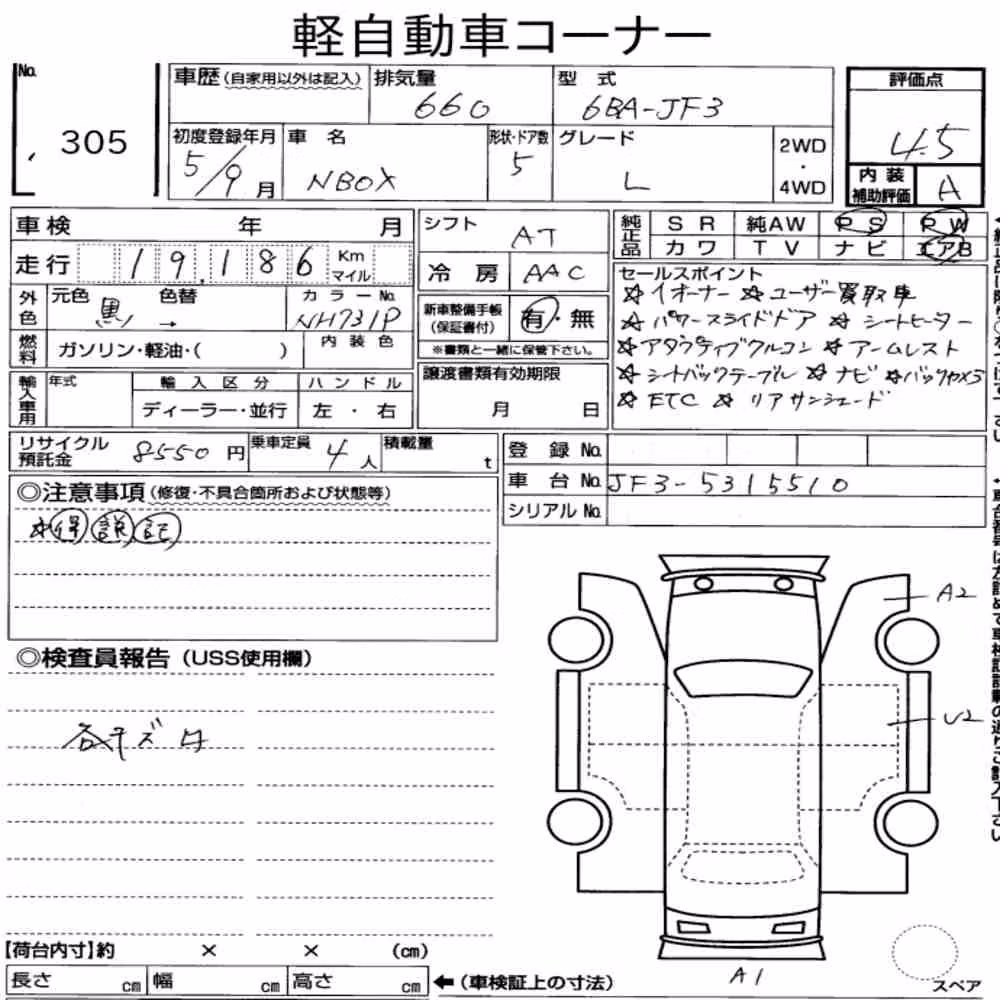 軽自動車コーナー
No.
305
車歴(自家用以外は記入)
排気量
660
型 式
6BA-JF3
評価点
4.5
初度登録年月
5/9月
車 名
NBOX
形状・ドア数
5
グレード
L
2WD
・
4WD
内装
補助評価
A
車検 年 月
走行 19,186 Km
マイル
シフト
AT
冷房 AAC
純正品
SR 純AW PS PW
カワ TV ナビ エアB
外色
元色 黒 → 色替
カラーNo.
NH731P
新車整備手帳
(保証書付)
有・無
※書類と一緒に保管下さい。
セールスポイント
☆1オーナー ☆ユーザー買取車
☆パワースライドドア ☆シートヒーター
☆アダプティブクルコン ☆アームレスト
☆シートバックテーブル ☆ナビ ☆バックカメラ
☆ETC ☆リアサンシェード
燃料
ガソリン・軽油・( )
内装色
輸入車用
年式
輸入区分
ハンドル
ディーラー・並行
左・右
譲渡書類有効期限
月 日
リサイクル
預託金
8550円
乗車定員
4人
積載量
t
登録 No.
車台 No. JF3-5315510
シリアル No.
◎注意事項(修復・不具合箇所および状態等)
保 説 記
◎検査員報告(USS使用欄)
A2
U2
A1
【荷台内寸】約 × × (cm)
長さ cm 幅 cm 高さ cm
←(車検証上の寸法)
スペア